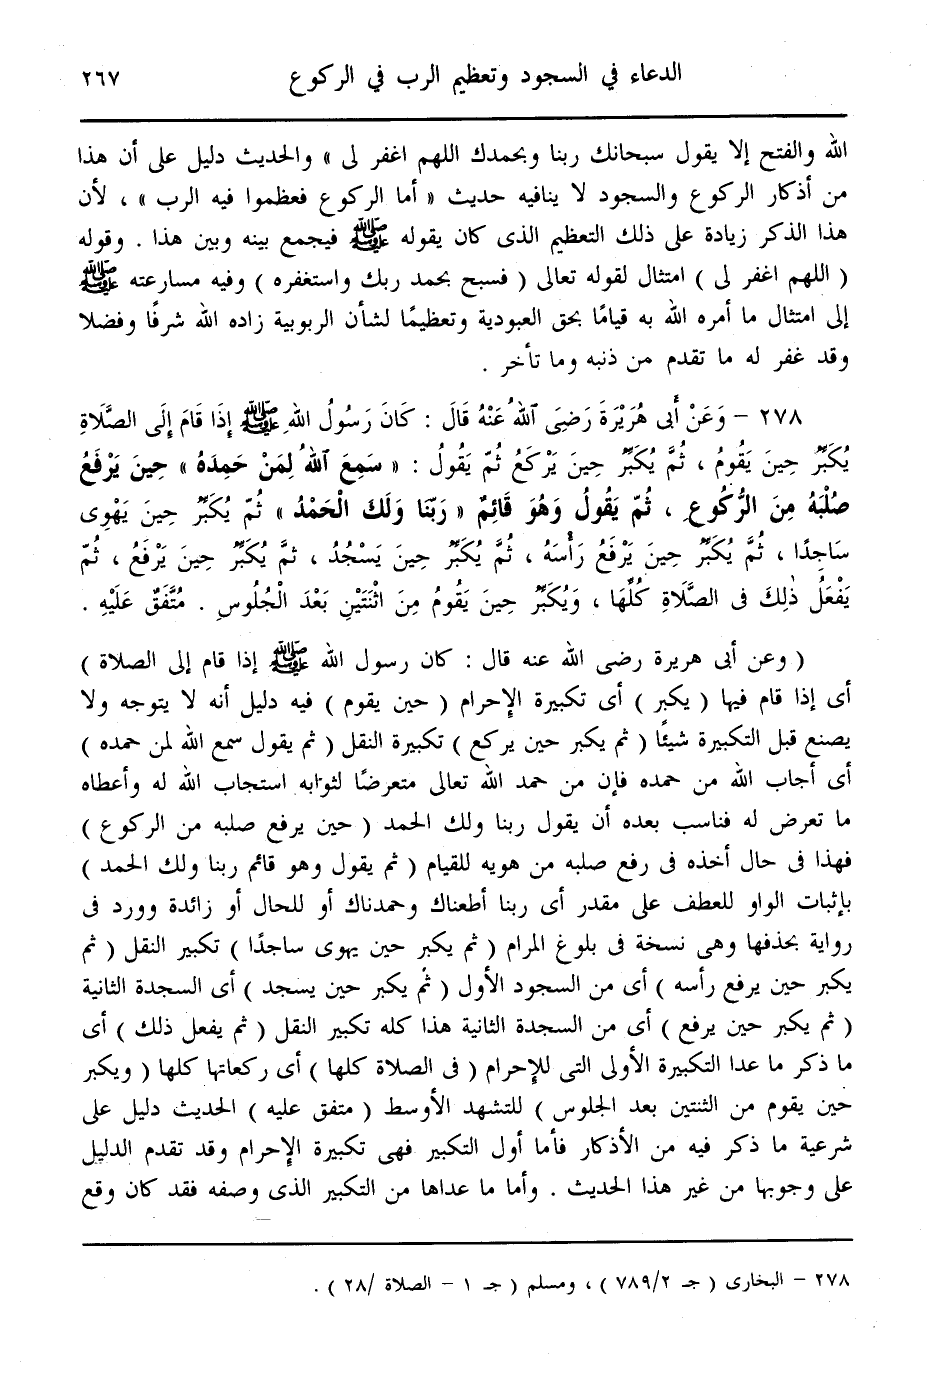 الدعاء في السجود وتعظيم الرب في الركوع ٢٦٧
الله والفتح إلا يقول سبحانك ربنا وبحمدك اللهم اغفر لى » والحديث دليل على أن هذا
من أذكار الركوع والسجود لا ينافيه حديث « أما الركوع فعظموا فيه الرب » ، لأن
هذا الذكر زيادة على ذلك التعظيم الذى كان يقوله ﷺ فيجمع بينه وبين هذا . وقوله
( اللهم اغفر لى ) امتثال لقوله تعالى ( فسبح بحمد ربك واستغفره ) وفيه مسارعته ﷺ
إلى امتثال ما أمره الله به قيامًا بحق العبودية وتعظيمًا لشأن الربوبية زاده الله شرفًا وفضلا
وقد غفر له ما تقدم من ذنبه وما تأخر .
٢٧٨ – وَعَنْ أَبِى هُرَيْرَةَ رَضِىَ اللهُ عَنْهُ قَالَ : كَانَ رَسُولُ اللهِ ﷺ إِذَا قَامَ إِلَى الصَّلَاةِ
يُكَبِّرُ حِينَ يَقُومُ ، ثُمَّ يُكَبِّرُ حِينَ يَرْكَعُ ثُمَّ يَقُولُ : « سَمِعَ اللهُ لِمَنْ حَمِدَهُ » حِينَ يَرْفَعُ
صُلْبَهُ مِنَ الرُّكُوعِ ، ثُمَّ يَقُولُ وَهُوَ قَائِمٌ « رَبَّنَا وَلَكَ الْحَمْدُ » ثُمَّ يُكَبِّرُ حِينَ يَهْوِى
سَاجِدًا ، ثُمَّ يُكَبِّرُ حِينَ يَرْفَعُ رَأْسَهُ ، ثُمَّ يُكَبِّرُ حِينَ يَسْجُدُ ، ثمَّ يُكَبِّرُ حِينَ يَرْفَعُ ، ثُمَّ
يَفْعَلُ ذٰلِكَ فى الصَّلَاةِ كُلِّهَا ، وَيُكَبِّرُ حِينَ يَقُومُ مِنَ اثْنَتَيْنِ بَعْدَ الْجُلُوسِ . مُتَّفَقٌ عَلَيْهِ .
( وعن أبى هريرة رضى الله عنه قال : كان رسول الله ﷺ إذا قام إلى الصلاة )
أى إذا قام فيها ( يكبر ) أى تكبيرة الإحرام ( حين يقوم ) فيه دليل أنه لا يتوجه ولا
يصنع قبل التكبيرة شيئًا ( ثم يكبر حين يركع ) تكبيرة النقل ( ثم يقول سمع الله لمن حمده )
أى أجاب الله من حمده فإن من حمد الله تعالى متعرضًا لثوابه استجاب الله له وأعطاه
ما تعرض له فناسب بعده أن يقول ربنا ولك الحمد ( حين يرفع صلبه من الركوع )
فهذا فى حال أخذه فى رفع صلبه من هويه للقيام ( ثم يقول وهو قائم ربنا ولك الحمد )
بإثبات الواو للعطف على مقدر أى ربنا أطعناك وحمدناك أو للحال أو زائدة وورد فى
رواية بحذفها وهى نسخة فى بلوغ المرام ( ثم يكبر حين يهوى ساجدًا ) تكبير النقل ( ثم
يكبر حين يرفع رأسه ) أى من السجود الأول ( ثُم يكبر حين يسجد ) أى السجدة الثانية
( ثم يكبر حين يرفع ) أى من السجدة الثانية هذا كله تكبير النقل ( ثم يفعل ذلك ) أى
ما ذكر ما عدا التكبيرة الأولى التى للإحرام ( فى الصلاة كلها ) أى ركعاتها كلها ( ويكبر
حين يقوم من الثنتين بعد الجلوس ) للتشهد الأوسط ( متفق عليه ) الحديث دليل على
شرعية ما ذكر فيه من الأذكار فأما أول التكبير فهى تكبيرة الإحرام وقد تقدم الدليل
على وجوبها من غير هذا الحديث . وأما ما عداها من التكبير الذى وصفه فقد كان وقع
٢٧٨ – البخارى ( جـ ٧٨٩/٢ ) ، ومسلم ( جـ ١ – الصلاة /٢٨ ) .